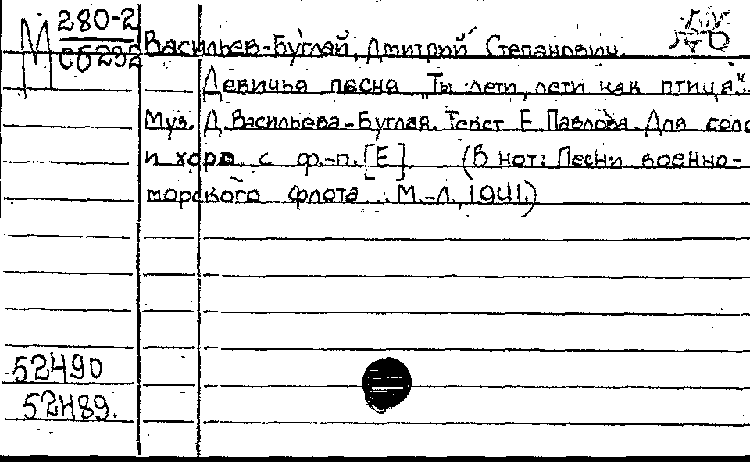 М 280-2
Сб292
Васильев-Буглай, Дмитрий Степанович.
Девичья песня „Ты лети, лети как птица".
Муз. Д. Васильева-Буглая. Текст Е. Павлова. Для соло
и хора с ф.-п. [Е]. (В нот: Песни военно-
морского флота. М.-Л., 1941.)
52490
52489.